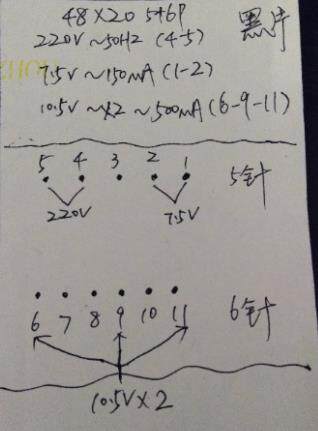 48×20 5+6P 黑片
220V ~50HZ (4-5)
7.5V ~150mA (1-2)
10.5V ~×2 ~500mA (6-9-11)
5 4 3 2 1 5针
220V 7.5V
6 7 8 9 10 11 6针
10.5V×2